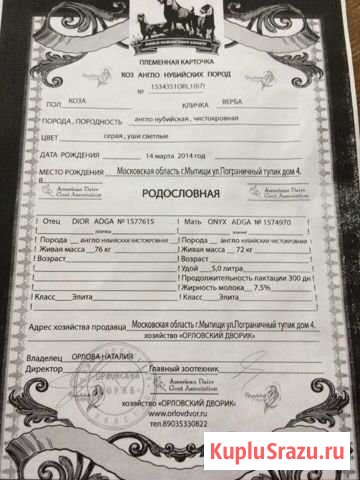 ПЛЕМЕННАЯ КАРТОЧКА
КОЗ АНГЛО НУБИЙСКИХ ПОРОД
№ 1534351ORL1(67)
ПОЛ КОЗА КЛИЧКА ВЕРБА
ПОРОДА , ПОРОДНОСТЬ англо нубийская , чистокровная
ЦВЕТ серая , уши светлые
ДАТА РОЖДЕНИЯ 14 марта 2014 год
МЕСТО РОЖДЕНИЯ Московская область г.Мытищи ул.Пограничный тупик дом 4.
American Dairy Goat Association
РОДОСЛОВНАЯ
American Dairy Goat Association
! Отец DIOR ADGA № 1577615 ! Мать ONYX ADGA № 1574970 !
! Порода __ англо нубийская чистокровная ! Порода __ англо нубийская чистокровная !
! Живая масса __76 кг ! Живая масса __ 72 кг !
! Возраст ! Возраст !
! Удой __5,0 литра !
! Продолжительность лактации 300 дн !
! Жирность молока __ 7,5% !
! Класс __Элита ! Класс __Элита !
Адрес хозяйства продавца Московская область г.Мытищи ул.Пограничный тупик дом 4.
хозяйство «ОРЛОВСКИЙ ДВОРИК»
Владелец ОРЛОВА НАТАЛИЯ
Директор Главный зоотехник
American Dairy Goat Association
хозяйство «ОРЛОВСКИЙ ДВОРИК»
www.orlovdvor.ru
тел.89035330822
KupluSrazu.ru